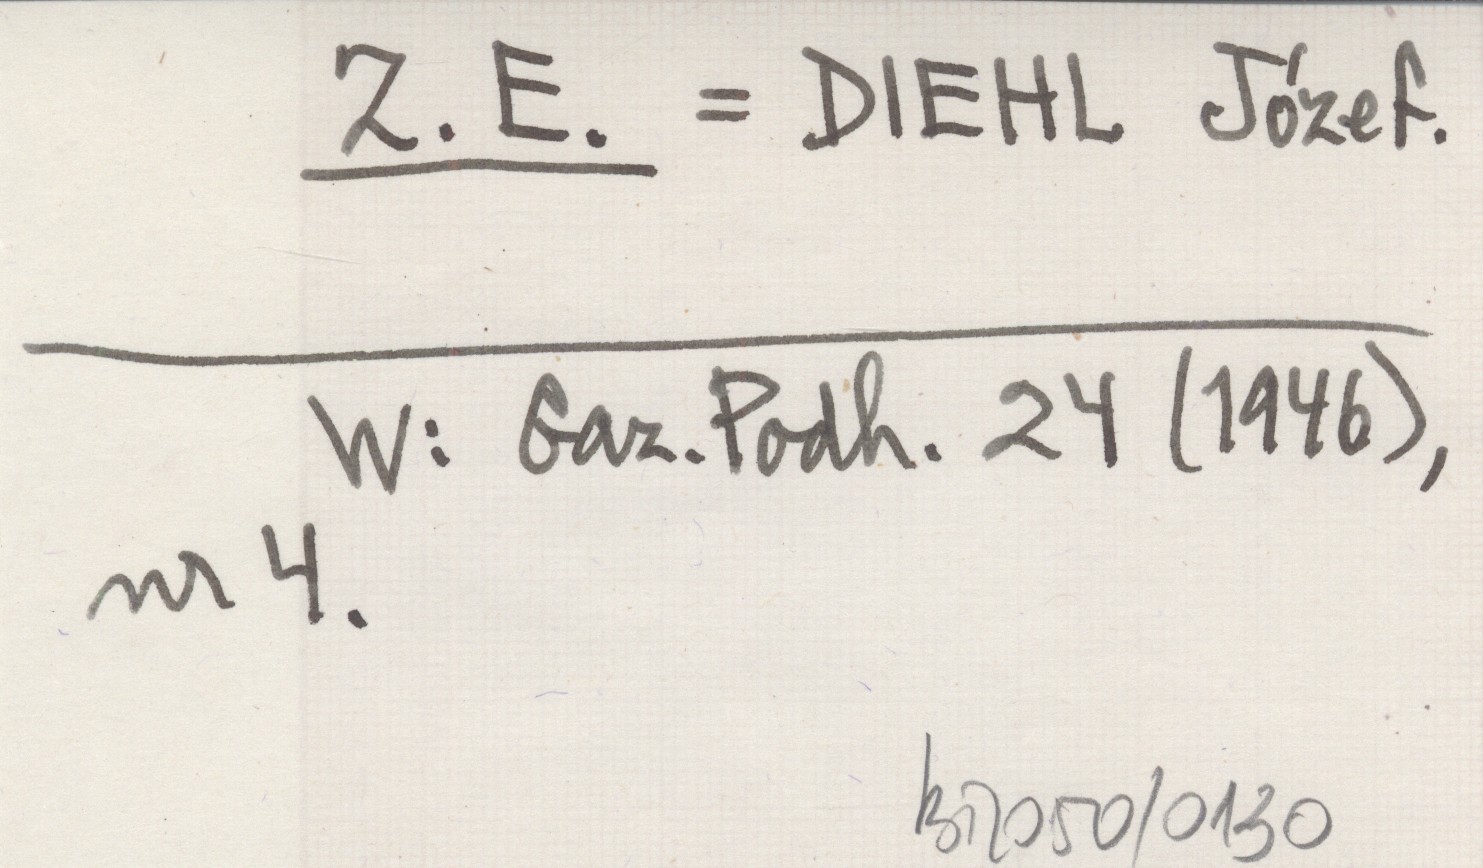 Z. E. = DIEHL Józef.
W: Gaz. Podh. 24 (1946),
nr 4.